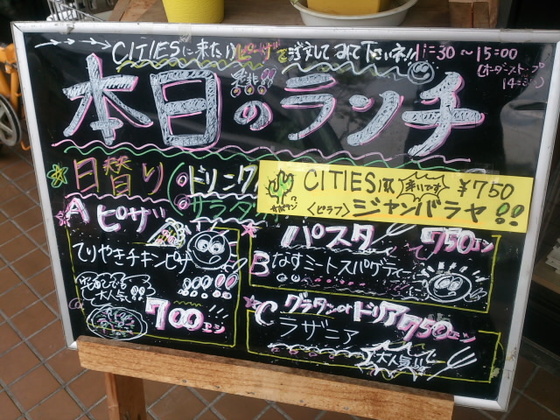 CITIESに来たらピザを注文してみて下さいネ 11:30〜15:00
(オーダーストップ
本日のランチ
日替り ドリンク
サラダ
CITIES風 辛いです ¥750
<ピラフ> ジャンバラヤ!!
A ピザ
てりやきチキンピザ
大人気!!
700エン
パスタ 750エン
B なすミートスパゲティー
C グラタンorドリア 750エン
ラザニア
大人気!!